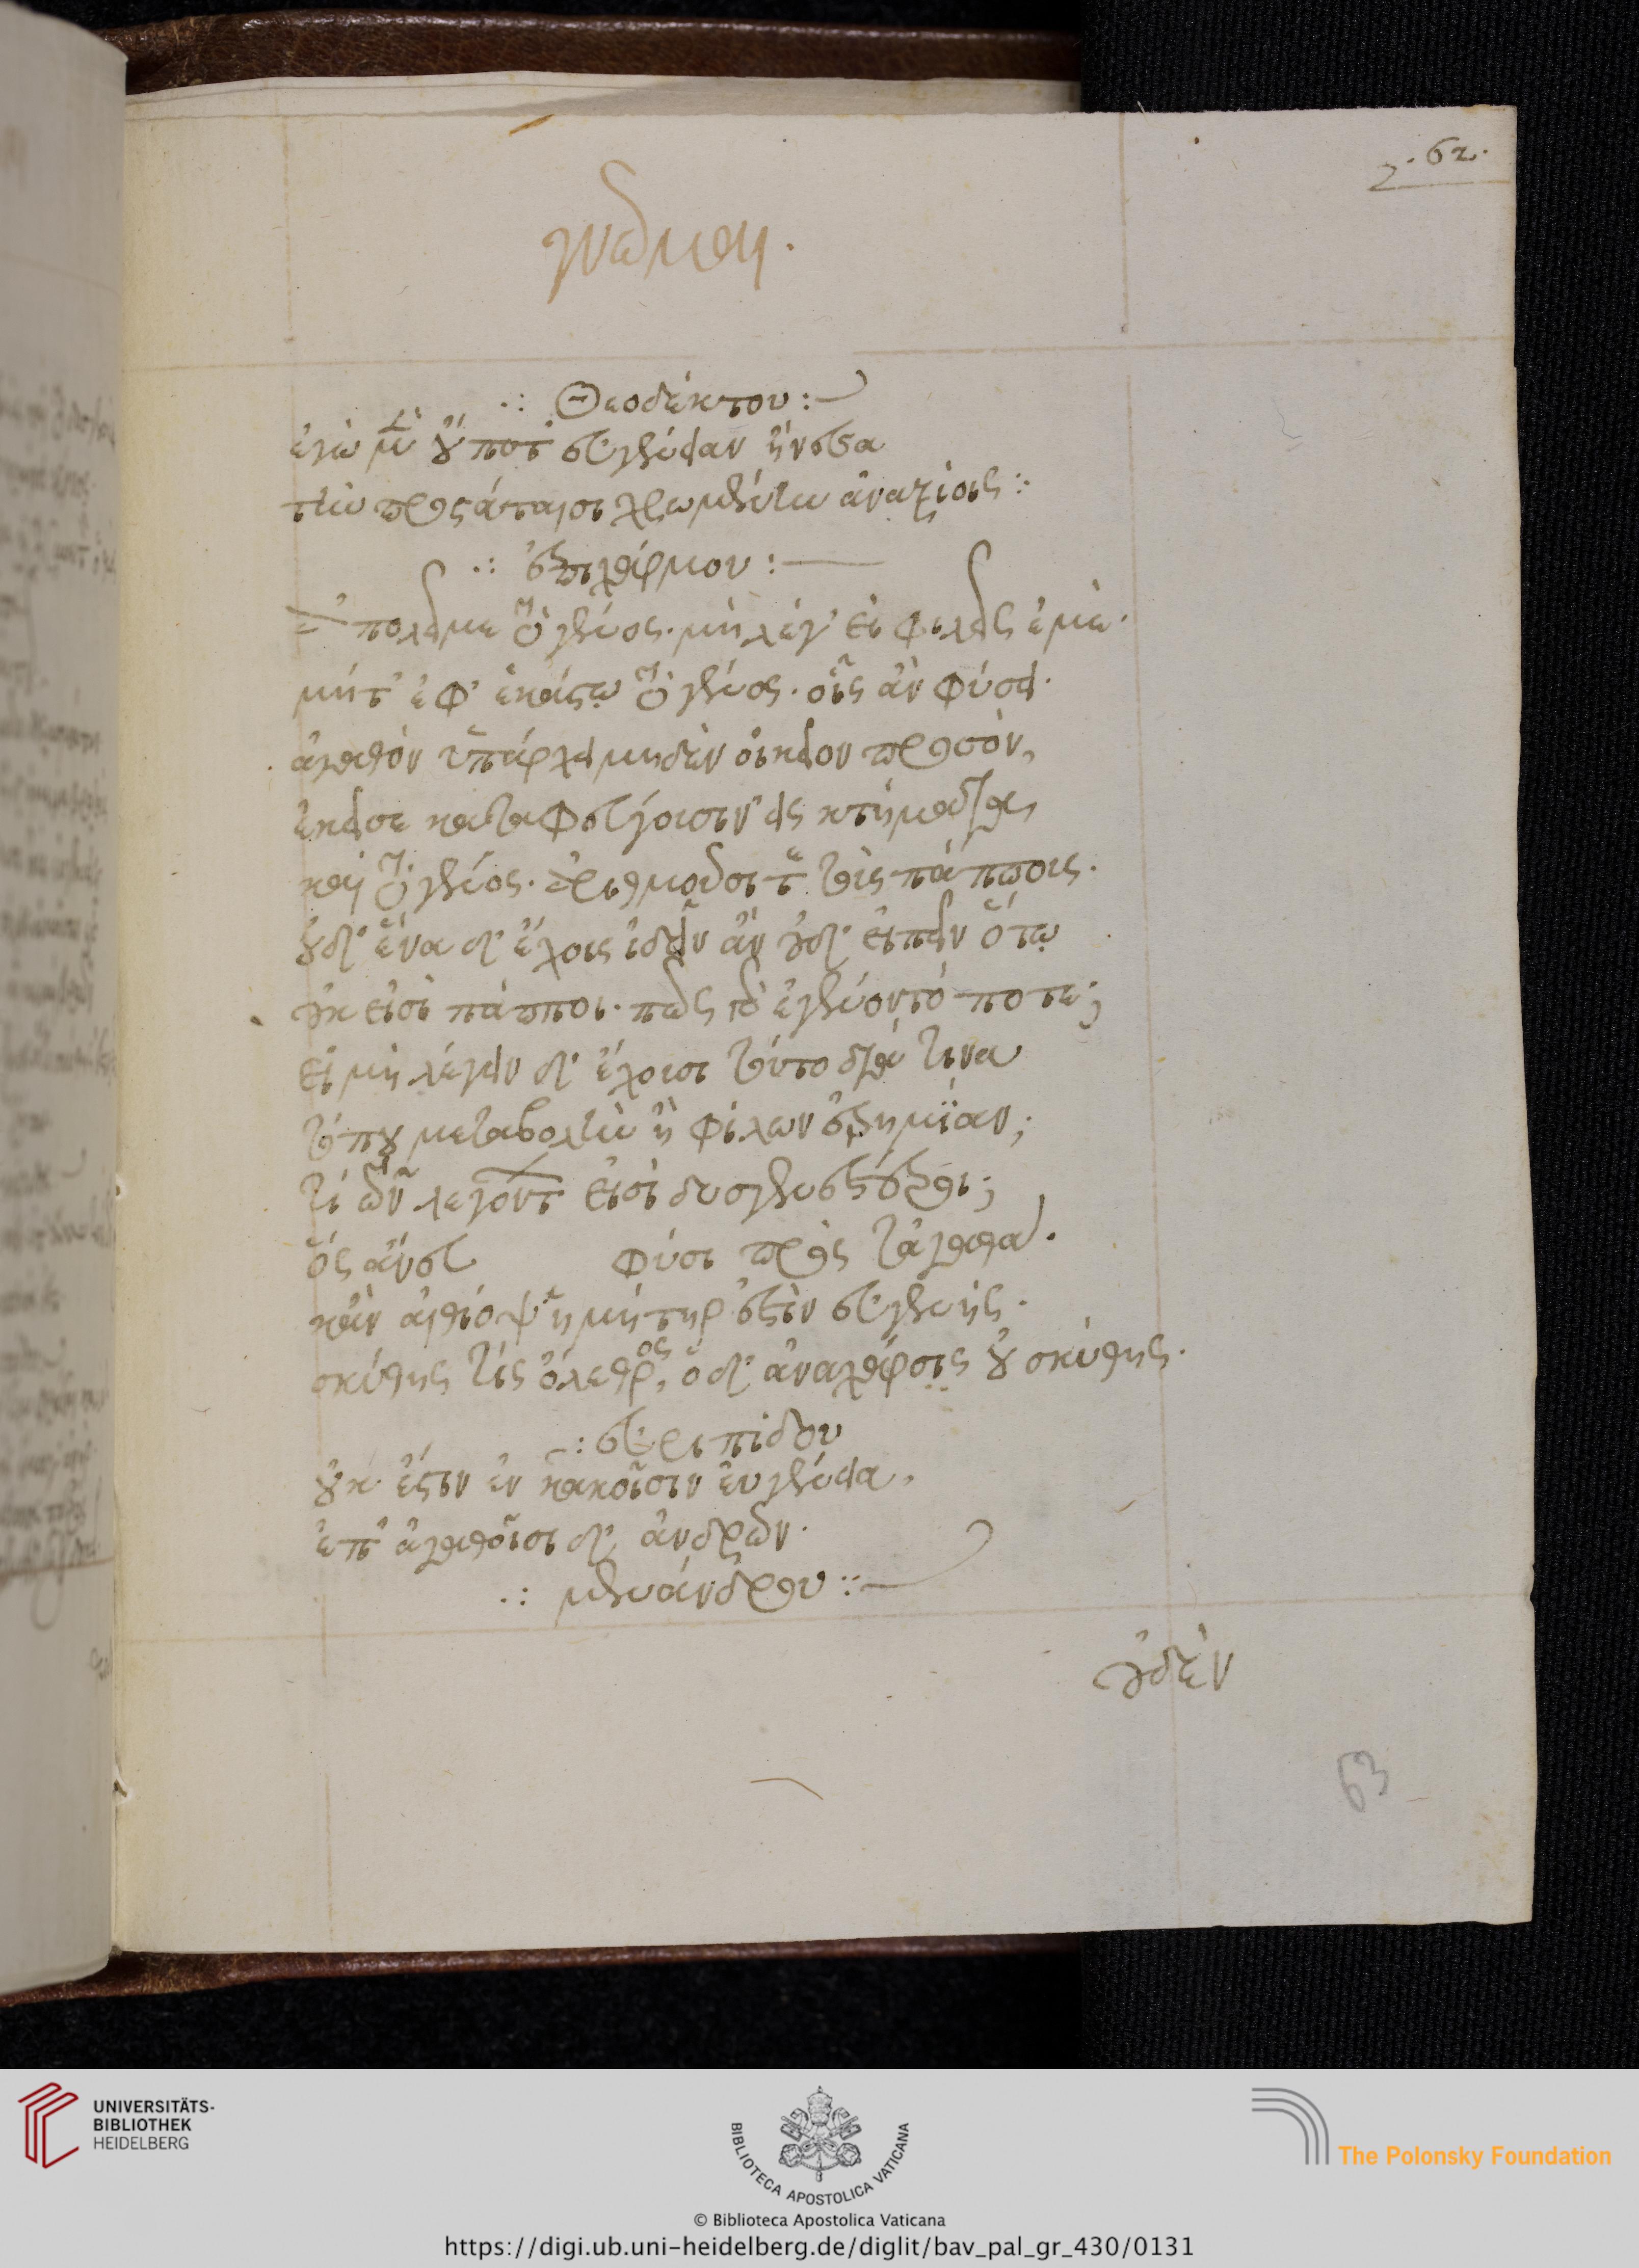 . 62 .
γνῶμαι.
Θεοδέκτου:
ἐγὼ μὲν οὔποτ' εὐγένειαν ἤνεσα
τὴν προστάταισι χρωμένην ἀναξίοις:
ἐπιχάρμου:
ἀπολεῖ με τὸ γένος. μὴ λέγ' εἰ φιλεῖς ἐμέ.
μήτ' ἐφ' ἑκάστῳ τὸ γένος. οἷς ἂν φύσει
ἀγαθὸν ὑπάρχει μηδὲν οἰκεῖον προσὸν,
ἐκεῖσε καταφεύγουσιν εἰς κτήματα
καὶ τὸ γένος. ἀριθμοῦσι τε τοὺς πάππους.
οὐδ' ἕνα δ' ἔχοις ἰδεῖν ἂν οὐδ' εἰπεῖν ὅτῳ
οὐκ εἰσὶ πάπποι. πῶς γὰρ ἐγένοντό ποτε;
εἰ μὴ λέγειν δ' ἔχοισι τοῦτο διά τινα
τόπου μεταβολὴν ἢ φίλων ἐρημίαν;
τί τῶν λεγόντων εἰσὶ δυσγενέστεροι;
ὃς ἂν εὖ φύσι πρὸς τἀγαθά.
κἂν αἰθίοψ ἡ μήτηρ ἐστὶν εὐγενής.
σκύθης τίς ὄλεθρος, ὁ δ' ἀναχάρσις οὐ σκύθης.
εὐριπίδου
οὐκ ἔστιν ἐν κακοῖσιν εὐγένεια,
ἐπ' ἀγαθοῖσι δ' ἀνδρῶν.
μενάνδρου
οὐδὲν
63
UNIVERSITÄTS-
BIBLIOTHEK
HEIDELBERG
BIBLIOTECA APOSTOLICA VATICANA
The Polonsky Foundation
© Biblioteca Apostolica Vaticana
https://digi.ub.uni-heidelberg.de/diglit/bav_pal_gr_430/0131